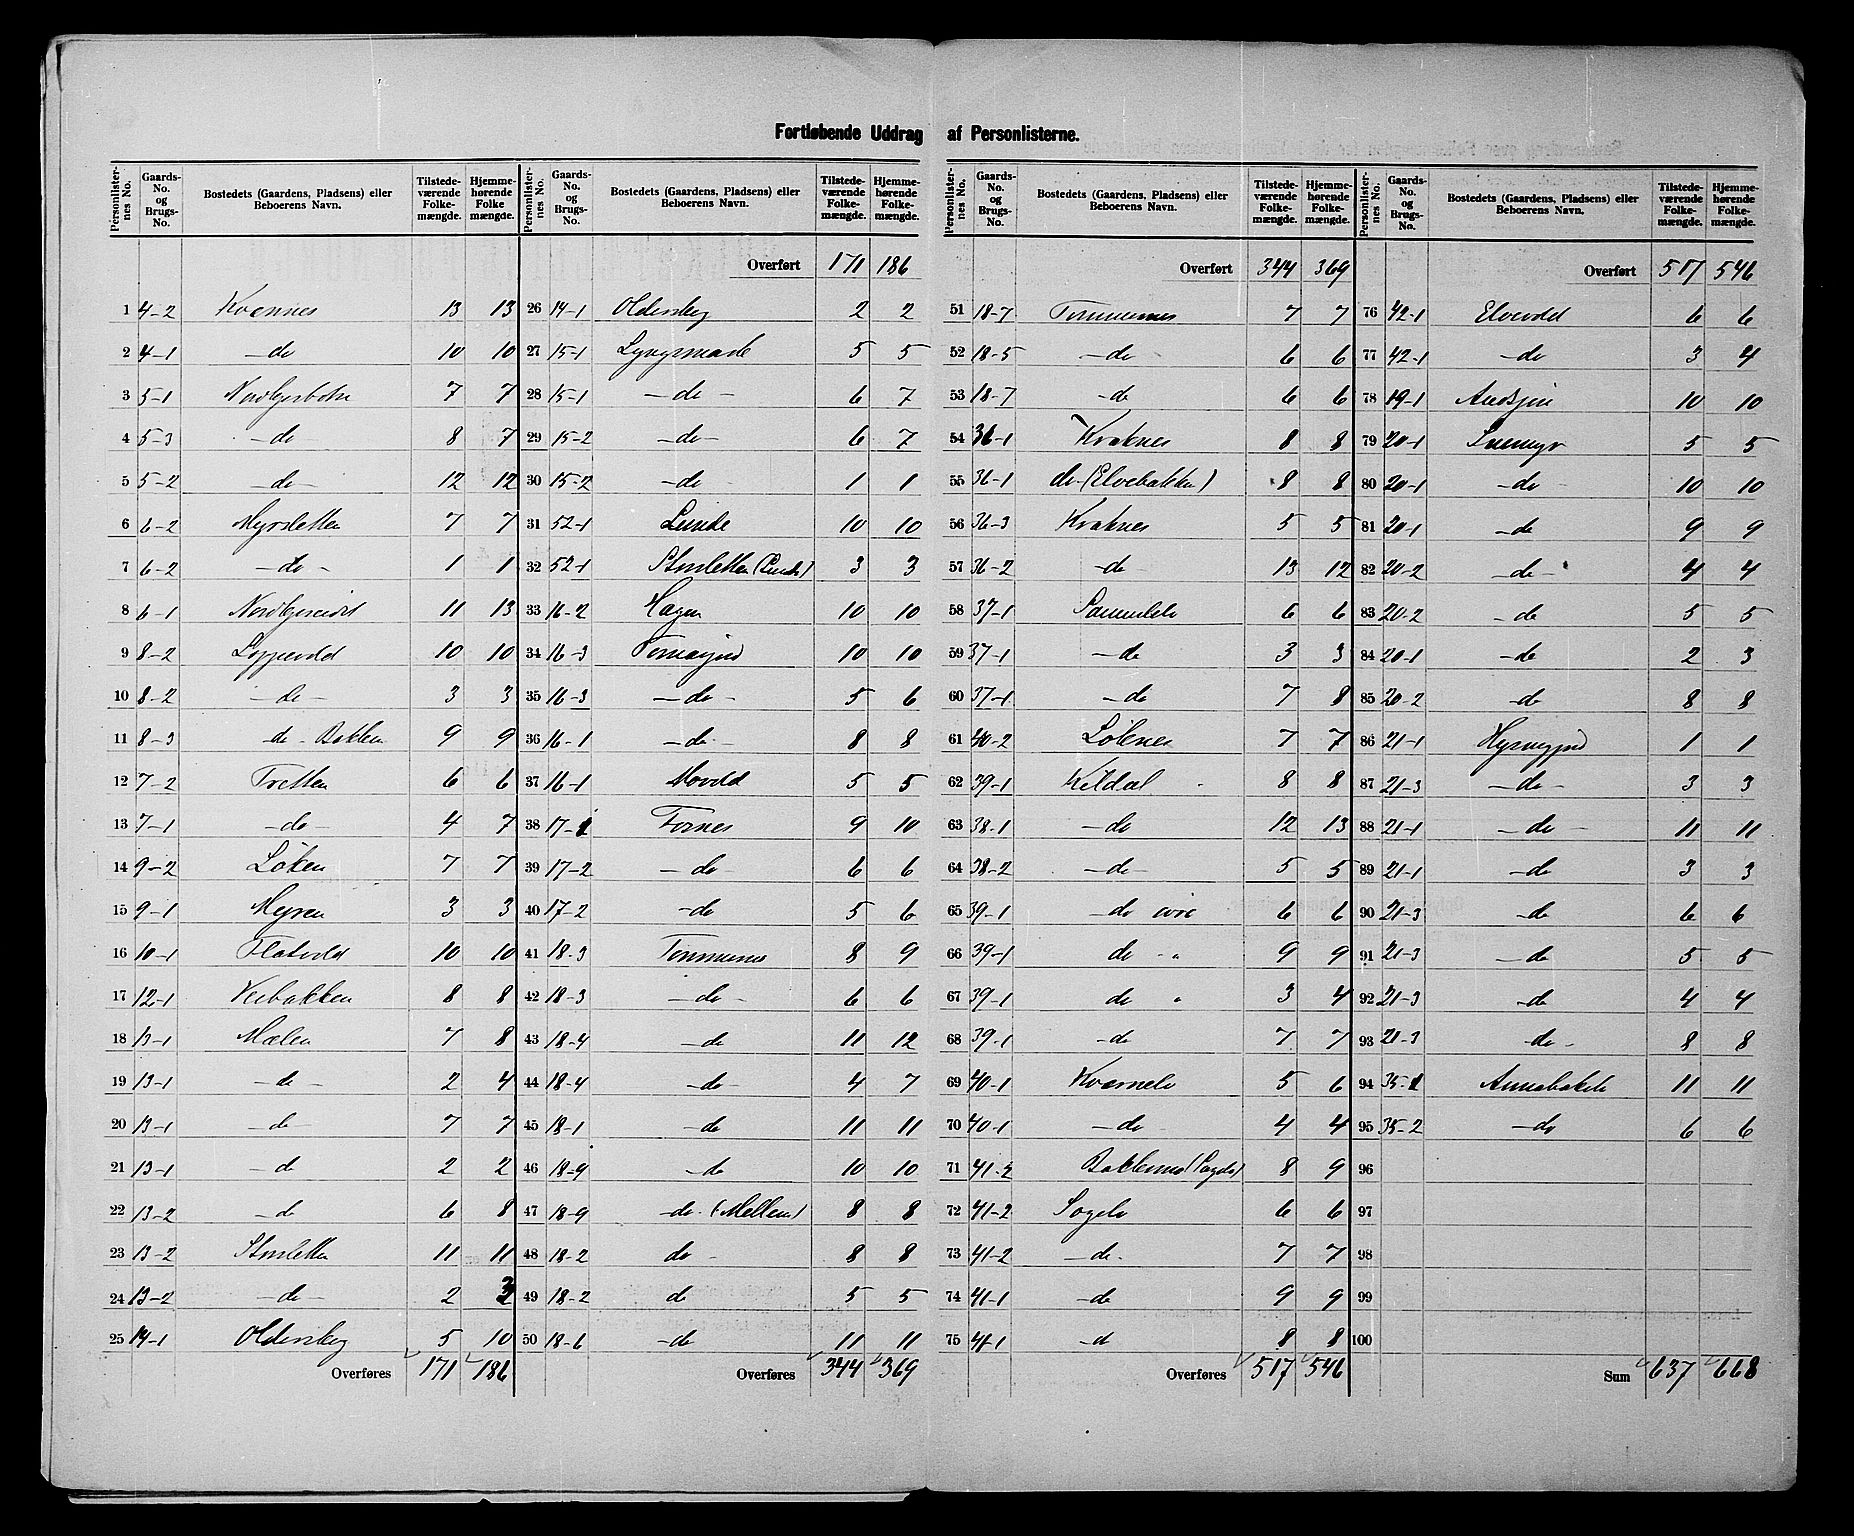 Fortløbende Uddrag af Personlisterne.
Personlister-nes No. | Gaards-No. og Brugs-No. | Bostedets (Gaardens, Pladsens) eller Beboerens Navn. | Tilstede-værende Folke-mængde. | Hjemme-hørende Folke mængde.
1 4-2 Kvænnes 13 13
2 4-1 -do- 10 10
3 5-1 Nordkjosbotn 7 7
4 5-3 -do- 8 7
5 5-2 -do- 12 12
6 6-2 Myrsletten 7 7
7 6-2 -do- 1 1
8 6-1 Nordkjoseidet 11 13
9 8-2 Loppevold 10 10
10 8-2 -do- 3 3
11 8-3 do - Bakken 9 9
12 7-2 Tretten 6 6
13 7-1 -do- 4 7
14 9-2 Løken 7 7
15 9-1 Myren 3 3
16 10-1 Flatvold 10 10
17 12-1 Veibakken 8 8
18 13-1 Mælen 7 8
19 13-1 -do- 2 4
20 13-1 -do- 7 7
21 13-1 -do 2 2
22 13-2 -do 6 8
23 13-2 Storsletten 11 11
24 13-2 -do- 2 3
25 14-1 Olderskog 5 10
Overføres 171 186
Personlister-nes No. | Gaards-No. og Brugs-No. | Bostedets (Gaardens, Pladsens) eller Beboerens Navn. | Tilstede-værende Folke-mængde. | Hjemme-hørende Folke-mængde.
Overført 171 186
26 14-1 Olderskog 2 2
27 15-1 Lyngsmark 5 5
28 15-1 -do- 6 7
29 15-2 -do- 6 7
30 15-2 -do- 1 1
31 52-1 Lunde 10 10
32 52-1 Storsletten (Lunde) 3 3
33 16-2 Hagen 10 10
34 16-3 Tomasjord 10 10
35 16-3 -do- 5 6
36 16-1 -do- 8 8
37 16-1 Movold 5 5
38 17-1 Tornes 9 10
39 17-2 -do- 6 6
40 17-2 -do 5 6
41 18-3 Tømmernes 8 9
42 18-3 -do- 6 6
43 18-4 -do 11 12
44 18-4 -do- 4 7
45 18-1 -do 11 11
46 18-9 -do 10 10
47 18-9 -do- (Mellem) 8 8
48 18-2 do - 8 8
49 18-2 do 5 5
50 18-6 -do 11 11
Overføres 344 369
Personlister-nes No. | Gaards-No. og Brugs-No. | Bostedets (Gaardens, Pladsens) eller Beboerens Navn. | Tilstede-værende Folke-mængde. | Hjemme-hørende Folke-mængde.
Overført 344 369
51 18-7 Tømmernes 7 7
52 18-5 -do- 6 6
53 18-7 -do 6 6
54 36-1 Kraknes 8 8
55 36-1 do (Elvebakken) 8 8
56 36-3 Kraknes 5 5
57 36-2 -do- 13 12
58 37-1 Sommelelv 6 6
59 37-1 -do 3 3
60 37-1 -do 7 8
61 40-2 Løknes 7 7
62 39-1 Kildal 8 8
63 38-1 -do 12 13
64 38-2 -do- 5 5
65 39-1 -do øvre 6 6
66 39-1 do - " 9 9
67 39-1 do " 3 4
68 39-1 -do 7 7
69 40-1 Kværnelv 5 6
70 40-1 -do- 4 4
71 41-2 Bakkemo (Sagelv) 8 9
72 41-2 Sagelv 6 6
73 41-2 -do- 7 7
74 41-1 -do 9 9
75 41-1 -do 8 8
Overføres 517 546
Personlister-nes No. | Gaards-No. og Brugs-No. | Bostedets (Gaardens, Pladsens) eller Beboerens Navn. | Tilstede-værende Folke-mængde. | Hjemme-hørende Folke-mængde.
Overført 517 546
76 42-1 Elvevold 6 6
77 42-1 -do 3 4
78 19-1 10 10
79 20-1 Snemyr 5 5
80 20-1 -do- 10 10
81 20-1 -do 9 9
82 20-2 -do- 4 4
83 20-2 -do 5 5
84 20-1 -do 2 3
85 20-2 -do 8 8
86 21-1 1 1
87 21-3 -do- 3 3
88 21-1 -do- 11 11
89 21-1 -do 3 3
90 21-3 -do 6 6
91 21-3 -do 5 5
92 21-3 -do 4 4
93 21-3 -do- 8 8
94 35-1 Annabakelv 11 11
95 35-2 -do 6 6
96
97
98
99
100
Sum 637 668